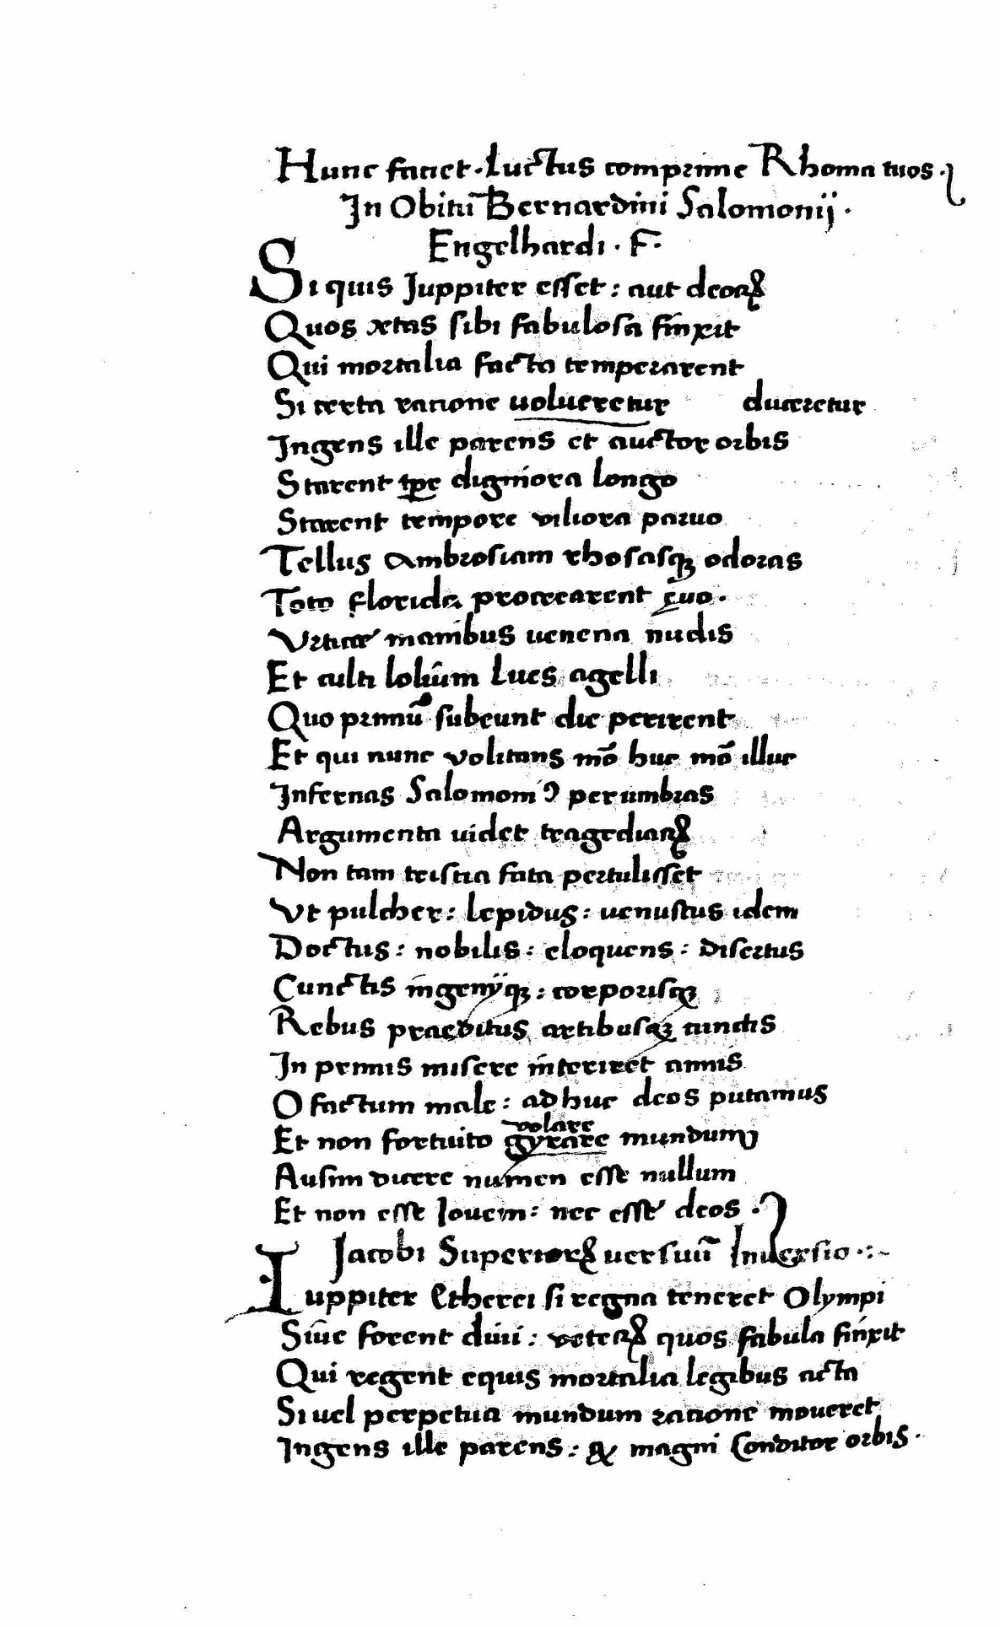 Hunc faciet. Luctus comprime Rhoma tuos.
In Obitū Bernardini Salomonij.
Engelhardi. F.
Si quis Juppiter esset: aut deoꝝ
Quos ætas sibi fabulosa finxit
Qui mortalia facta temperarent
Si certa ratione uolueretur duceretur
Ingens ille parens et auctor orbis
Starent tꝑe digniora longo
Starent tempore viliora paruo
Tellus Ambrosiam rhosasqꝫ odoras
Toto florida procrearent ęuo.
Vrticæ manibus uenena nudis
Et culti lolium lues agelli
Quo primū subeunt die perirent
Et qui nunc volitans mō huc mō illuc
Infernas Salomoniꝰ per umbras
Argumenta uidet tragediaꝝ
Non tam tristia fata pertulisset
Vt pulcher: lepidus: uenustus idem
Doctus: nobilis: eloquens: disertus
Cunctis ingenijqꝫ: corporisqꝫ
Rebus praeditus artibusqꝫ cunctis
In primis misere interiret annis
O factum male: adhuc deos putamus
volare
Et non fortuito gyrare mundum
Ausim dicere numen esse nullum
Et non esse Iouem: nec esse deos.
Jacobi Superioꝝ versuū Inuersio.
Iuppiter Etherei si regna teneret Olympi
Siue forent diui: veteꝝ quos fabula finxit
Qui regent equis mortalia legibus acta
Si uel perpetua mundum ratione moueret
Ingens ille parens: & magni Conditor orbis.